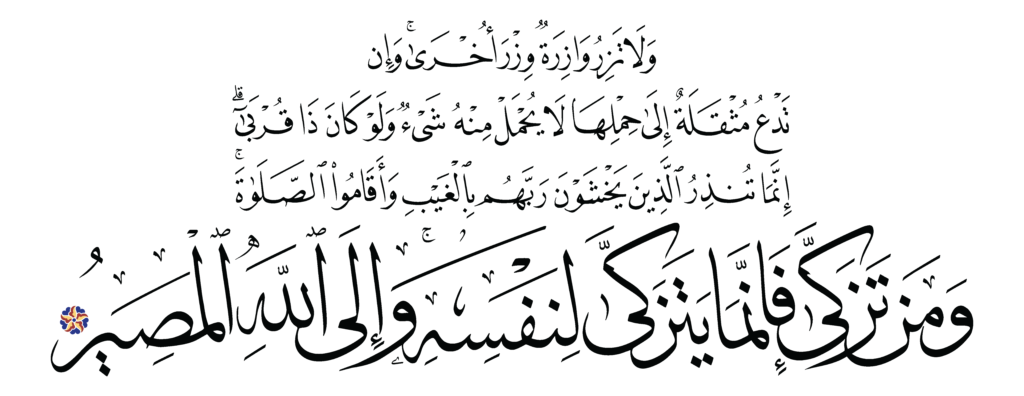 وَلَا تَزِرُ وَازِرَةٌ وِزْرَ أُخْرَىٰ ۚ وَإِن
تَدْعُ مُثْقَلَةٌ إِلَىٰ حِمْلِهَا لَا يُحْمَلْ مِنْهُ شَيْءٌ وَلَوْ كَانَ ذَا قُرْبَىٰٓ ۗ
إِنَّمَا تُنذِرُ ٱلَّذِينَ يَخْشَوْنَ رَبَّهُم بِٱلْغَيْبِ وَأَقَامُوا۟ ٱلصَّلَوٰةَ ۚ
وَمَن تَزَكَّىٰ فَإِنَّمَا يَتَزَكَّىٰ لِنَفْسِهِ ۚ وَإِلَى ٱللَّهِ ٱلْمَصِيرُ